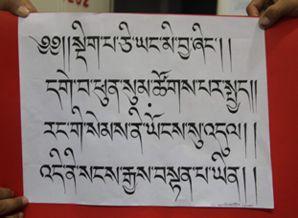 ༄༅།།སྡིག་པ་ཅི་ཡང་མི་བྱ་ཞིང་།།
དགེ་བ་ཕུན་སུམ་ཚོགས་པར་སྤྱད།།
རང་གི་སེམས་ནི་ཡོངས་སུ་འདུལ།།
འདི་ནི་སངས་རྒྱས་བསྟན་པ་ཡིན།།